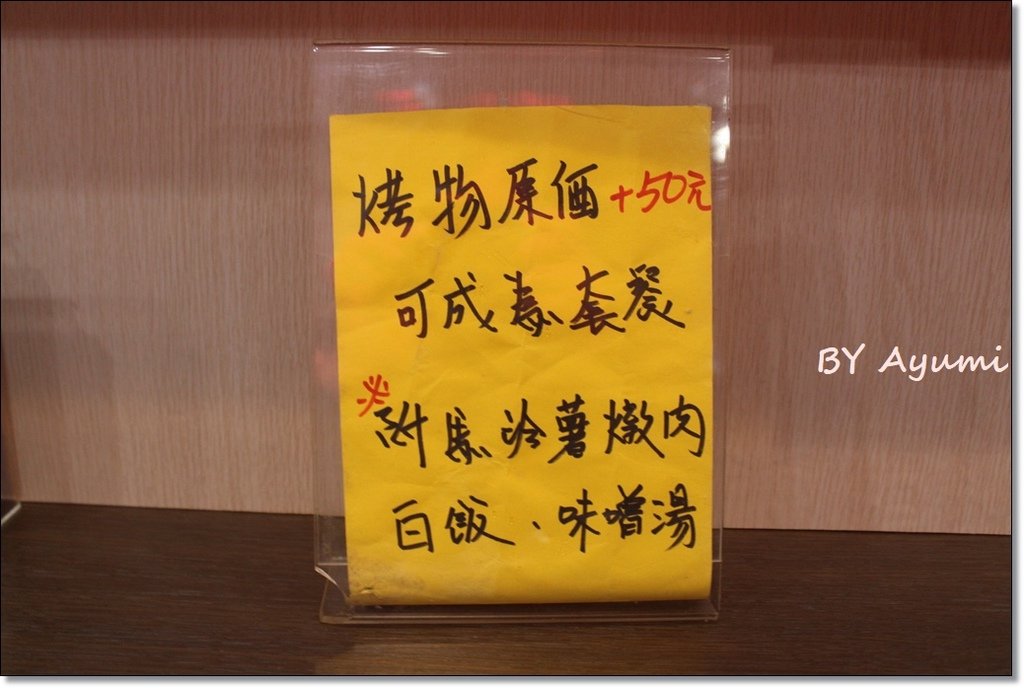 烤物原価+50元
可成為套餐
※附馬冷薯燉肉
白飯、味噌湯
BY Ayumi